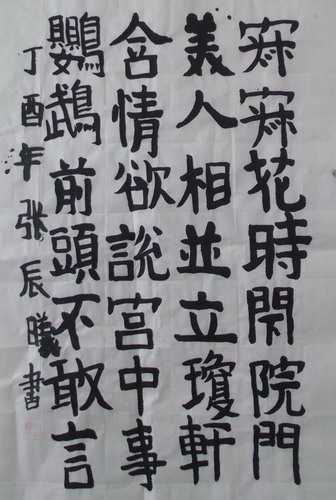 寂寂花時閉院門
美人相並立瓊軒
含情欲說宮中事
鸚鵡前頭不敢言
丁酉年张辰曦書